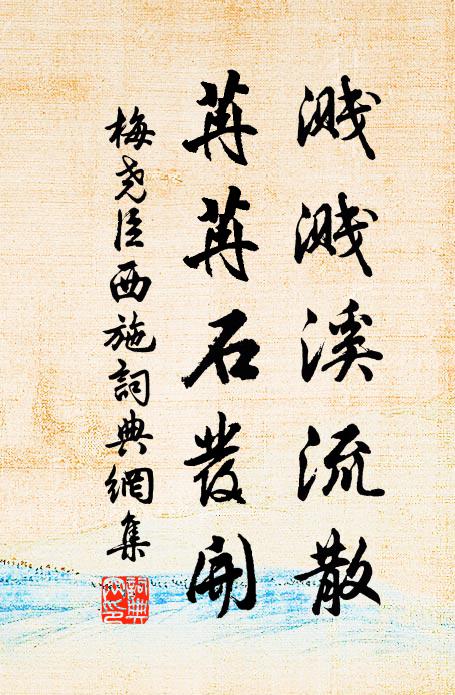 濺濺溪流散
苒苒石發開
梅堯臣西施詞典網集